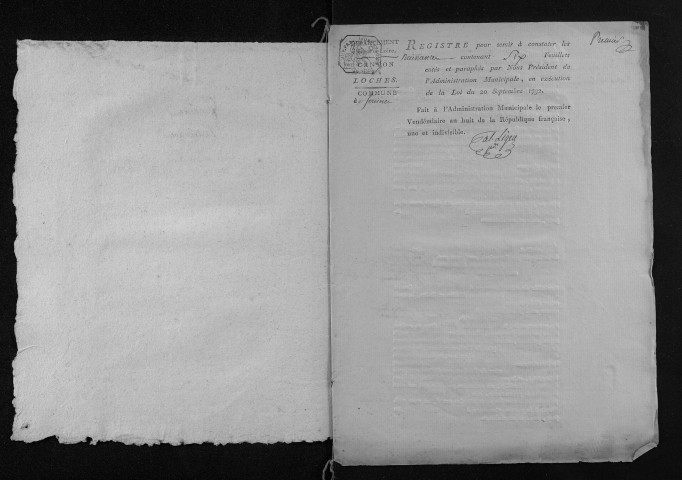 DÉPARTEMENT
CANTON
LOCHES.
COMMUNE
REGISTRE pour servir à constater les
Naissances contenant Six Feuillets
cotés et paraphés par Nous Président de
l'Administration Municipale, en exécution
de la Loi du 20 Septembre 1792.
Fait à l'Administration Municipale le premier
Vendémiaire an huit de la République française,
une et indivisible.
Premier